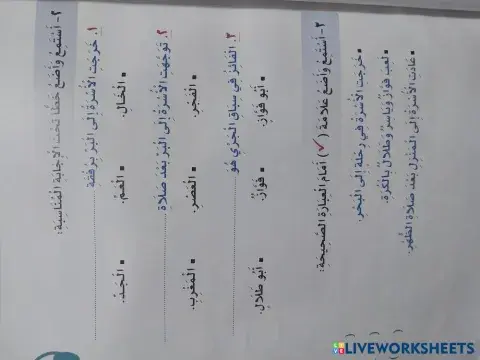 ٢- أَسْتَمِعُ وَأَضَعُ خَطًّا تَحْتَ الْإِجَابَةِ الْمُنَاسِبَةِ:
١. خَرَجَتِ الْأُسْرَةُ إِلَى الْبَرِّ بِرِفْقَةِ
▪ الْخَالِ. ▪ الْعَمِّ. ▪ الْجَدِّ.
٢. تَوَجَّهَتِ الْأُسْرَةُ إِلَى الْبَرِّ بَعْدَ صَلَاةِ
▪ الْفَجْرِ. ▪ الْعَصْرِ. ▪ الْمَغْرِبِ.
٣. الْفَائِزُ فِي سِبَاقِ الْجَرْيِ هُوَ
▪ أَبُو فَوَّازٍ. ▪ فَوَّازٌ. ▪ أَبُو طَلَالٍ.
٣- أَسْتَمِعُ وَأَضَعُ عَلَامَةَ (✓) أَمَامَ الْعِبَارَةِ الصَّحِيحَةِ:
▪ خَرَجَتِ الْأُسْرَةُ فِي رِحْلَةٍ إِلَى الْبَحْرِ. ( )
▪ لَعِبَ فَوَّازٌ وَيَاسِرٌ وَطَلَالٌ بِالْكُرَةِ. ( )
▪ عَادَتِ الْأُسْرَةُ إِلَى الْمَنْزِلِ بَعْدَ صَلَاةِ الظُّهْرِ. ( )
LIVEWORKSHEETS